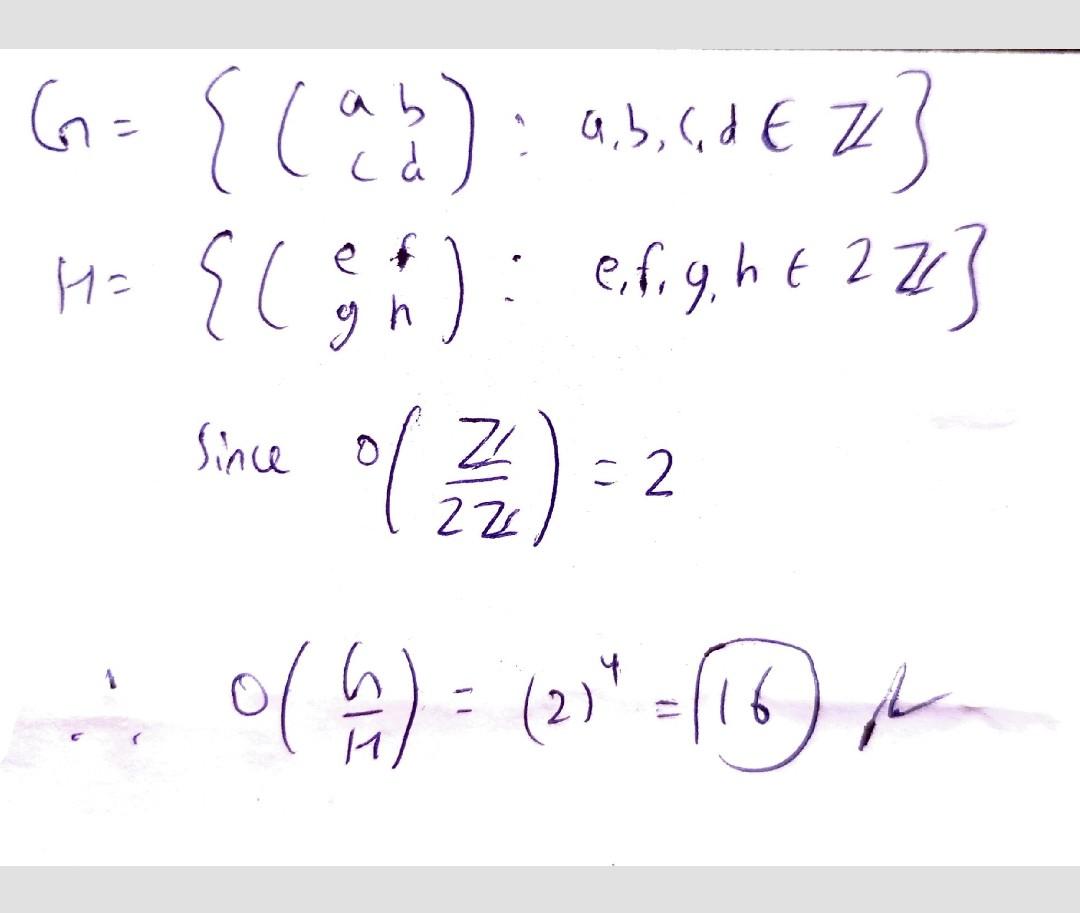 G = { ( a b
c d ) : a, b, c, d ∈ ℤ }
H = { ( e f
g h ) : e, f, g, h ∈ 2ℤ }
Since o( ℤ / 2ℤ ) = 2
∴ o( G / H ) = (2)⁴ = 16